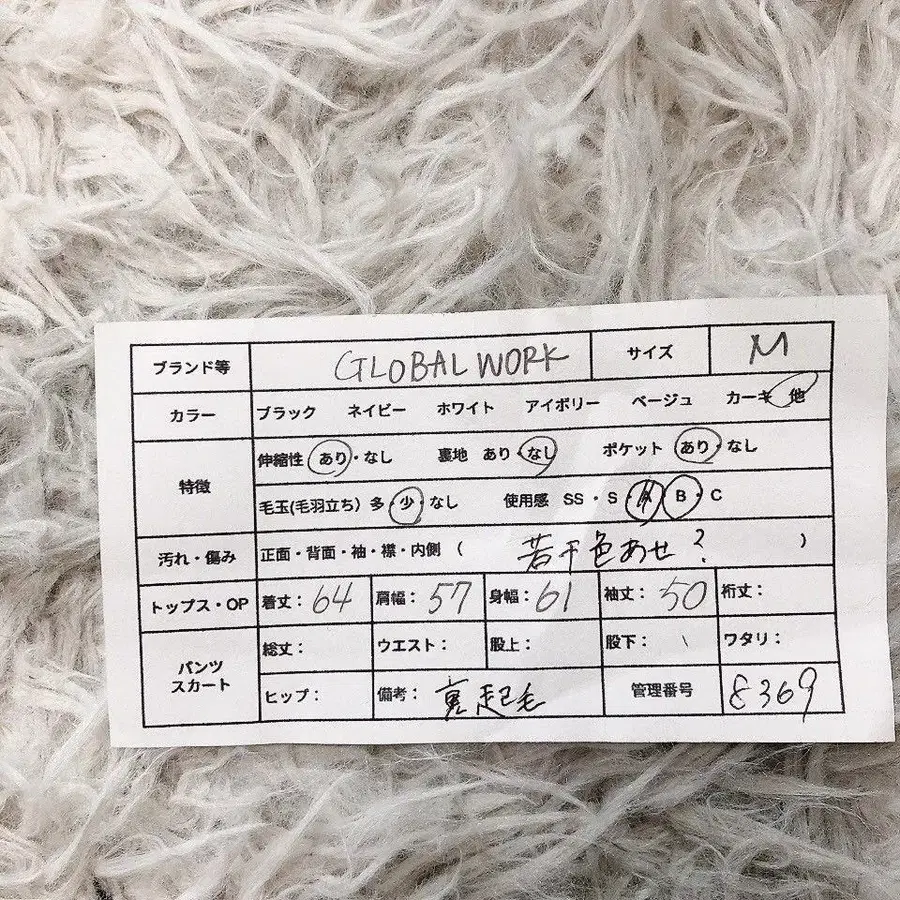 ブランド等 GLOBAL WORK サイズ M
カラー ブラック ネイビー ホワイト アイボリー ベージュ カーキ 他
特徴 伸縮性 あり・なし 裏地 あり・なし ポケット あり・なし
毛玉(毛羽立ち) 多・少・なし 使用感 SS・S・A・B・C
汚れ・傷み 正面・背面・袖・襟・内側 ( 若干色あせ? )
トップス・OP 着丈: 64 肩幅: 57 身幅: 61 袖丈: 50 裄丈:
パンツ
スカート
総丈: ウエスト: 股上: 股下: ワタリ:
ヒップ: 備考: 裏起毛 管理番号 8369